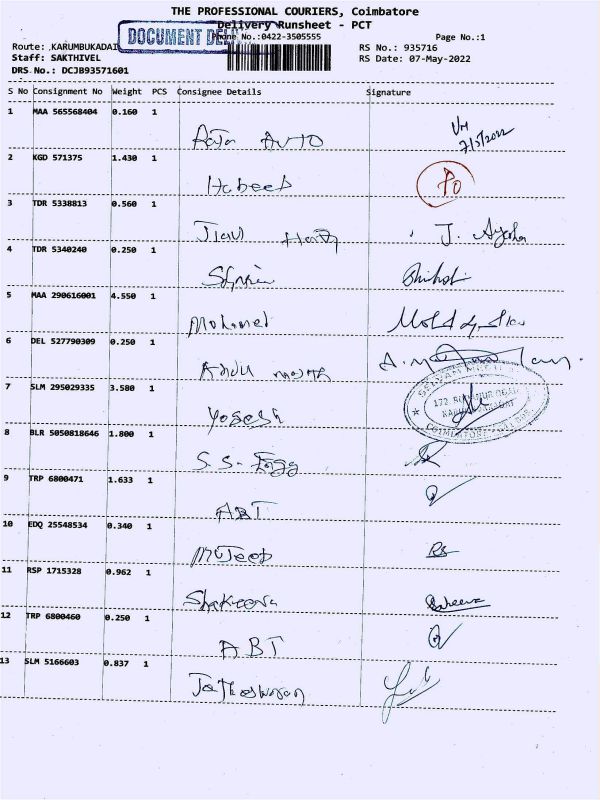 THE PROFESSIONAL COURIERS, Coimbatore
Delivery Runsheet - PCT
DOCUMENT DEL
Phone No.:0422-3505555
Page No.:1
Route: .KARUMBUKADAI
RS No.: 935716
Staff: SAKTHIVEL
RS Date: 07-May-2022
DRS No.: DCJB93571601
S No Consignment No Weight PCS Consignee Details Signature
1 MAA 565568404 0.160 1
AUTO 7/5/2022
2 KGD 571375 1.430 1
Habeeb
3 TDR 5338813 0.560 1
J. Aysha
4 TDR 5340240 0.250 1
5 MAA 290616001 4.550 1
Mohamed
6 DEL 527790309 0.250 1
7 SLM 295029335 3.580 1
Yogesh
8 BLR 5050818646 1.800 1
S.S. Eggg
9 TRP 6800471 1.633 1
ABT
10 EDQ 25548534 0.340 1
Mujeeb
11 RSP 1715328 0.962 1
Shakeena
12 TRP 6800460 0.250 1
ABT
13 SLM 5166603 0.837 1